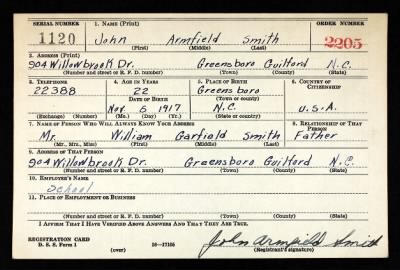 SERIAL NUMBER 1. NAME (Print) ORDER NUMBER
1120 John Armfield Smith 2205
(First) (Middle) (Last)
2. ADDRESS (Print)
904 Willowbrook Dr. Greensboro Guilford N.C.
(Number and street or R. F. D. number) (Town) (County) (State)
3. TELEPHONE 4. AGE IN YEARS 5. PLACE OF BIRTH 6. COUNTRY OF CITIZENSHIP
22388 22 Greensboro
DATE OF BIRTH (Town or county)
Nov. 5 1917 N.C. U.S.A.
(Exchange) (Number) (Mo.) (Day) (Yr.) (State or country)
7. NAME OF PERSON WHO WILL ALWAYS KNOW YOUR ADDRESS 8. RELATIONSHIP OF THAT PERSON
Mr. William Garfield Smith Father
(Mr., Mrs., Miss) (First) (Middle) (Last)
9. ADDRESS OF THAT PERSON
904 Willowbrook Dr. Greensboro Guilford N.C.
(Number and street or R. F. D. number) (Town) (County) (State)
10. EMPLOYER'S NAME
School
11. PLACE OF EMPLOYMENT OR BUSINESS
(Number and street or R. F. D. number) (Town) (County) (State)
I AFFIRM THAT I HAVE VERIFIED ABOVE ANSWERS AND THAT THEY ARE TRUE.
REGISTRATION CARD
D. S. S. Form 1 (over) 16—17105 John Armfield Smith
(Registrant's signature)